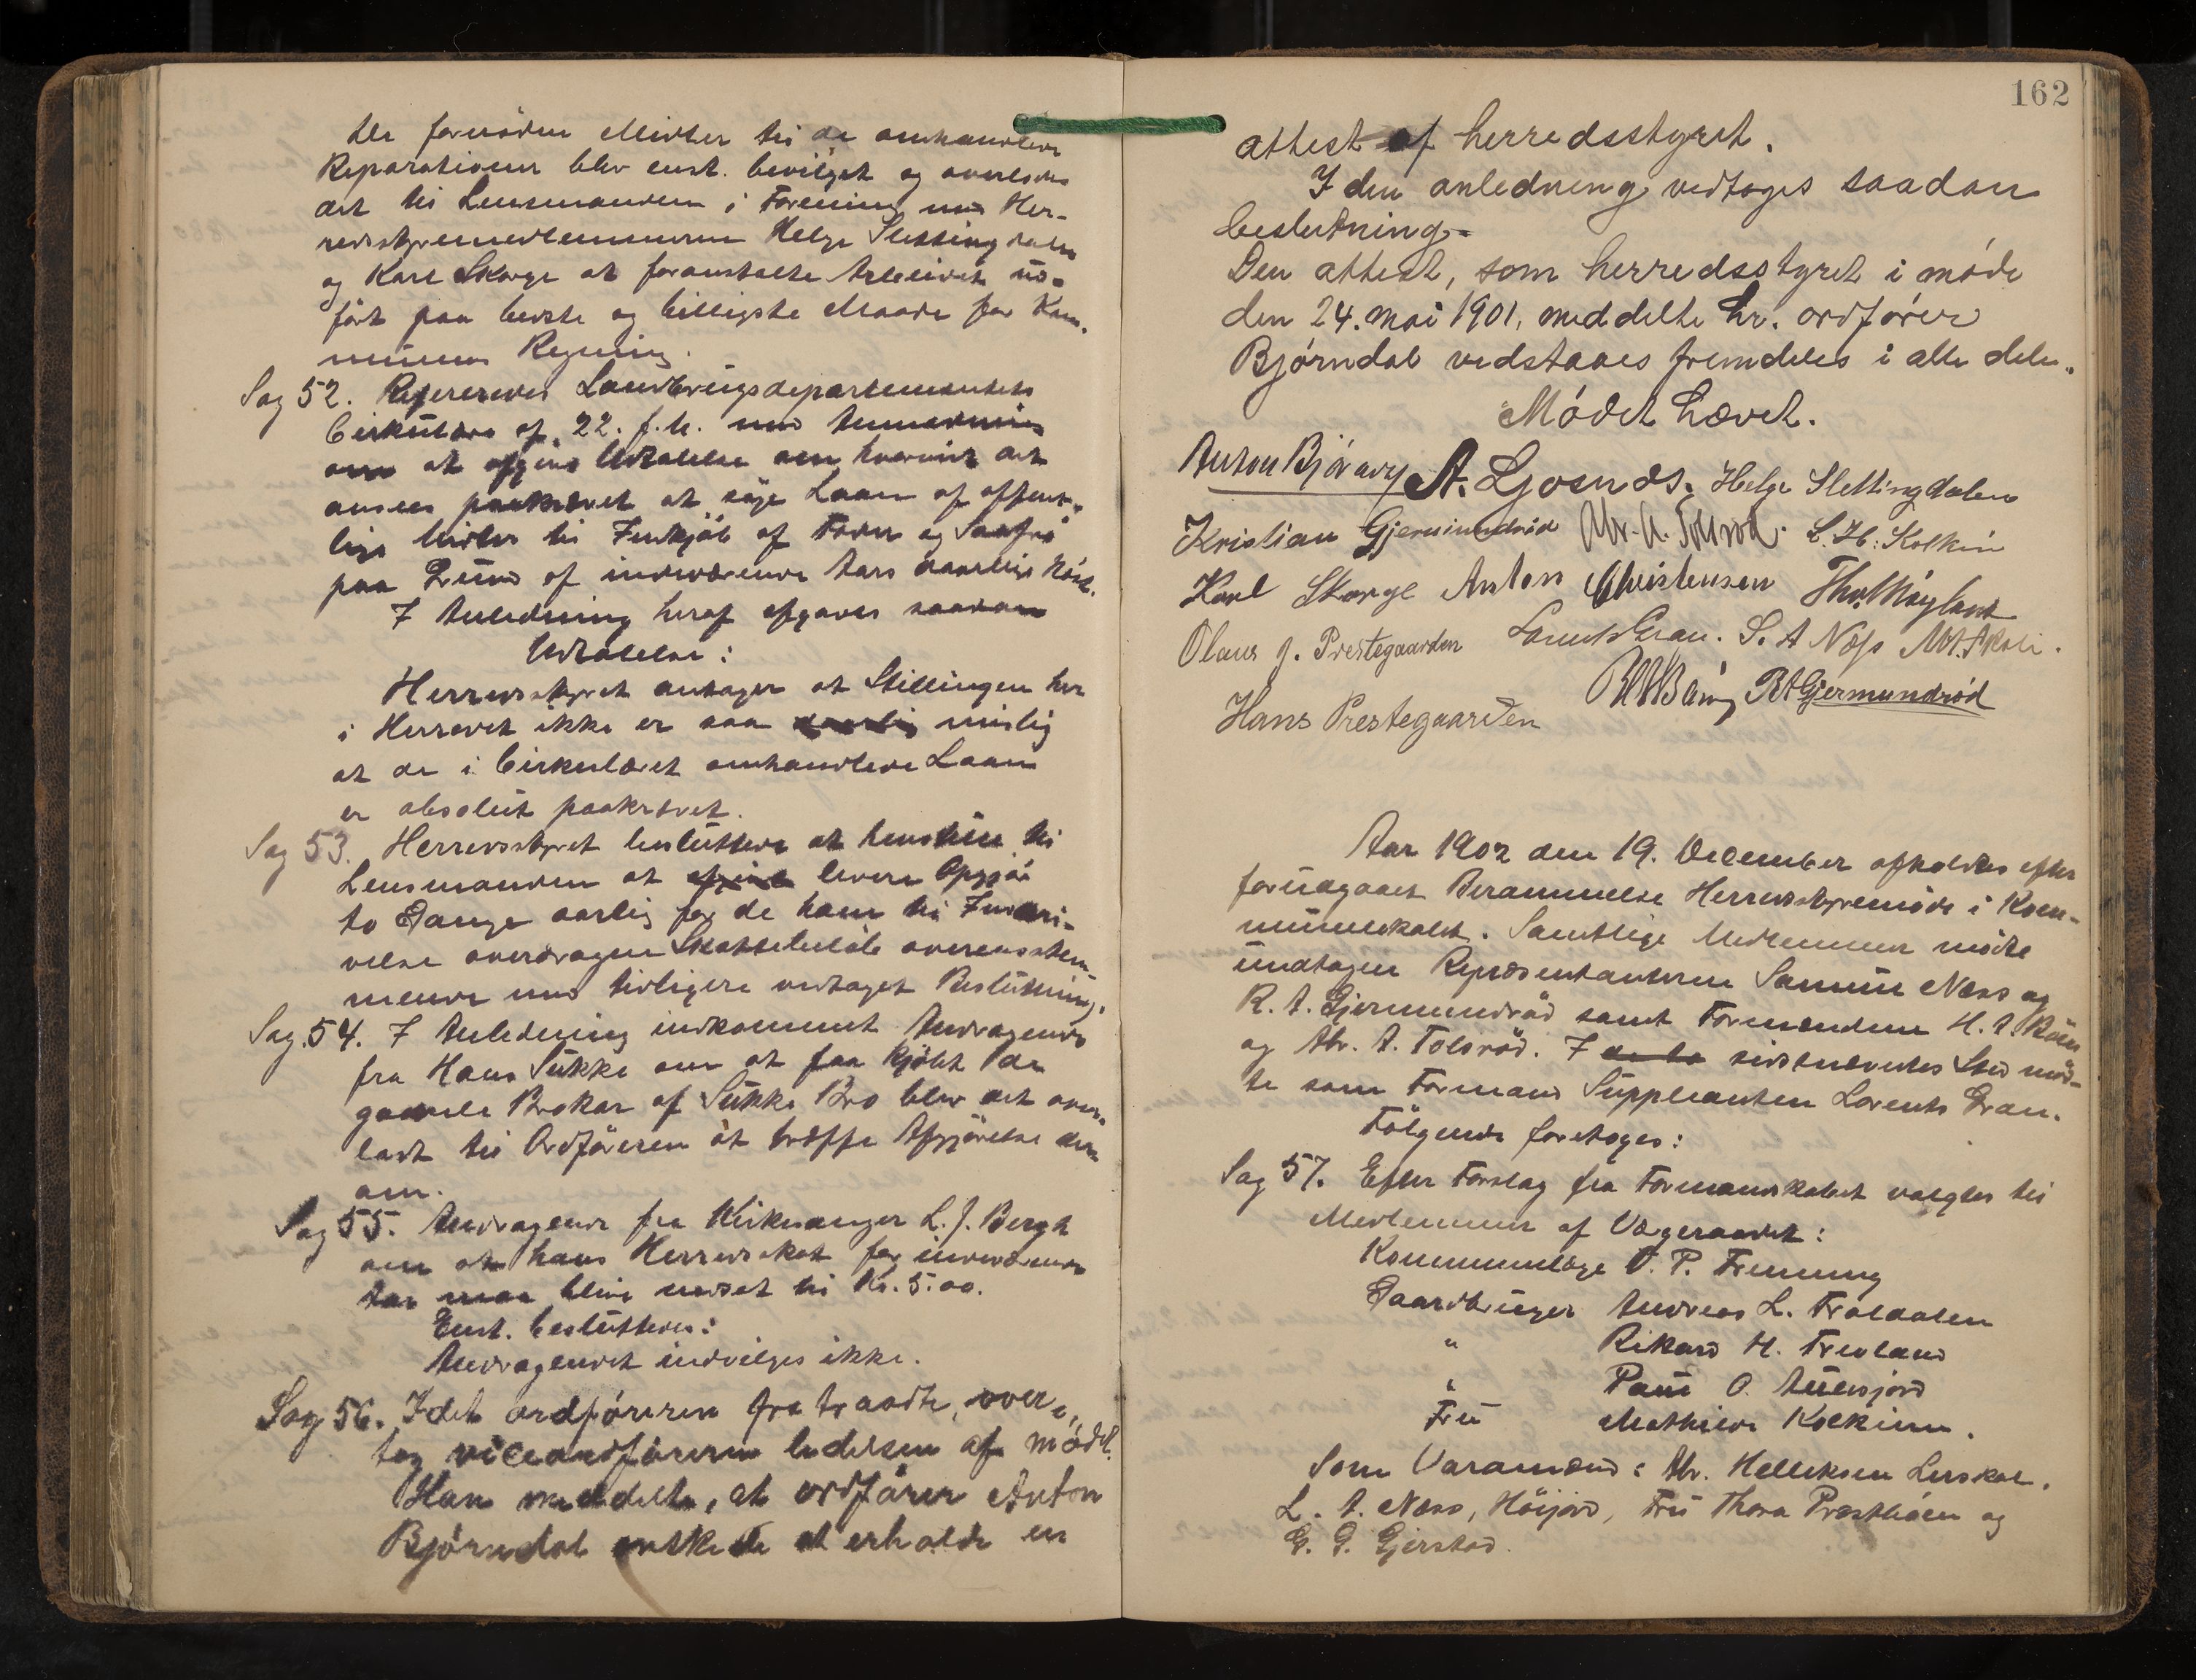 de fornødne Midler til de omhandlede
Reparationer blev enst. bevilget og overlodes
det til Lensmanden i Forening med Her-
redsstyremedlemmerne Helge Slettingdalen
og Karl Skorge at foranstalte Arbeidet ud-
ført paa bedste og billigste Maade for Kom-
munens Regning.
Sag 52. Refereredes Landbrugsdepartementets
Cirkulære af 22. f.M. med Anmodning
om at afgive Udtalelse om hvorvidt det
ansees paakrævet at søge Laan af offent-
lige Midler til Indkjøb af Foder og Saafrø
paa Grund af indeværende Aars daarlige Høst.
I Anledning heraf afgaves saadan
Udtalelse:
Herredsstyret antager at Stillingen her
i Herredet ikke er saa daarlig mislig
at de i Cirkulæret omhandlede Laan
er absolut paakrævet.
Sag 53. Herredsstyret besluttede at henstille til
Lensmanden at afgive levere Opgjør
to Gange aarlig for de ham til Inddri-
velse overdragne Skattebeløb overensstem-
mende med tidligere vedtaget Beslutning.
Sag 54. I Anledning indkommet Andragende
fra Hans Sukke om at faa kjøbt de
gamle Brokar af Sukke Bro blev det over-
ladt til Ordføreren at træffe Afgjørelse der-
om.
Sag 55. Andragende fra Kirkesanger L. J. Bergh
om at hans Herredsskat for indeværende
Aar maa blive nedsat til Kr. 5.00.
Enst. besluttedes:
Andragendet indvilges ikke.
Sag 56. Idet ordføreren fratraadte, over-
tog viceordføreren ledelsen af mødet.
Han meddelte, at ordfører Anton
Bjørndal ønskede at erholde en
162
attest af herredsstyret.
I den anledning vedtoges saadan
beslutning.
Den attest, som herredsstyret i møde
den 24. mai 1901, meddelte hr. ordfører
Bjørndal vedstaaes fremdeles i alle dele.
Mødet hævet.
Anton Bjørndal A. Gjosnds. Helge Slettingdalen
Kristian Gjermundrød Abr. A. Tolsrød. L. H. Kolkin
Karl Skorge Anton Christensen Thv. Høyland
Olaus J. Prestegaarden Lorents Gran. S. A Næss
R A Gjermundrød
Hans Prestegaarden
Aar 1902 den 19. December afholdtes efter
forudgaaet Berammelse Herredsstyremøde i Kom-
munelokalet. Samtlige Medlemmer mødte
undtagen Repræsentanterne Samuel Næss og
R. A. Gjermundrød samt Formændene H. A. Bøen
og Abr. A. Tolsrød. I de to sidstnævntes Sted mød-
te som Formand Suppleanten Lorents Gran.
Følgende foretoges:
Sag 57. Efter Forslag fra Formandskabet valgtes til
Medlemmer af Værgeraadet:
Kommunelæge O. P. Fremming
Gaardbruger Andreas L. Troldalen
" Rikard H. Trevland
" Paul O. Aulesjord
Fru Mathilde Kolkinn.
Som Varamænd: Abr. Helliksen Lerskal,
L. A. Næss, Høijord, Fru Thora Prestbøen og
G. G. Gjerstad.